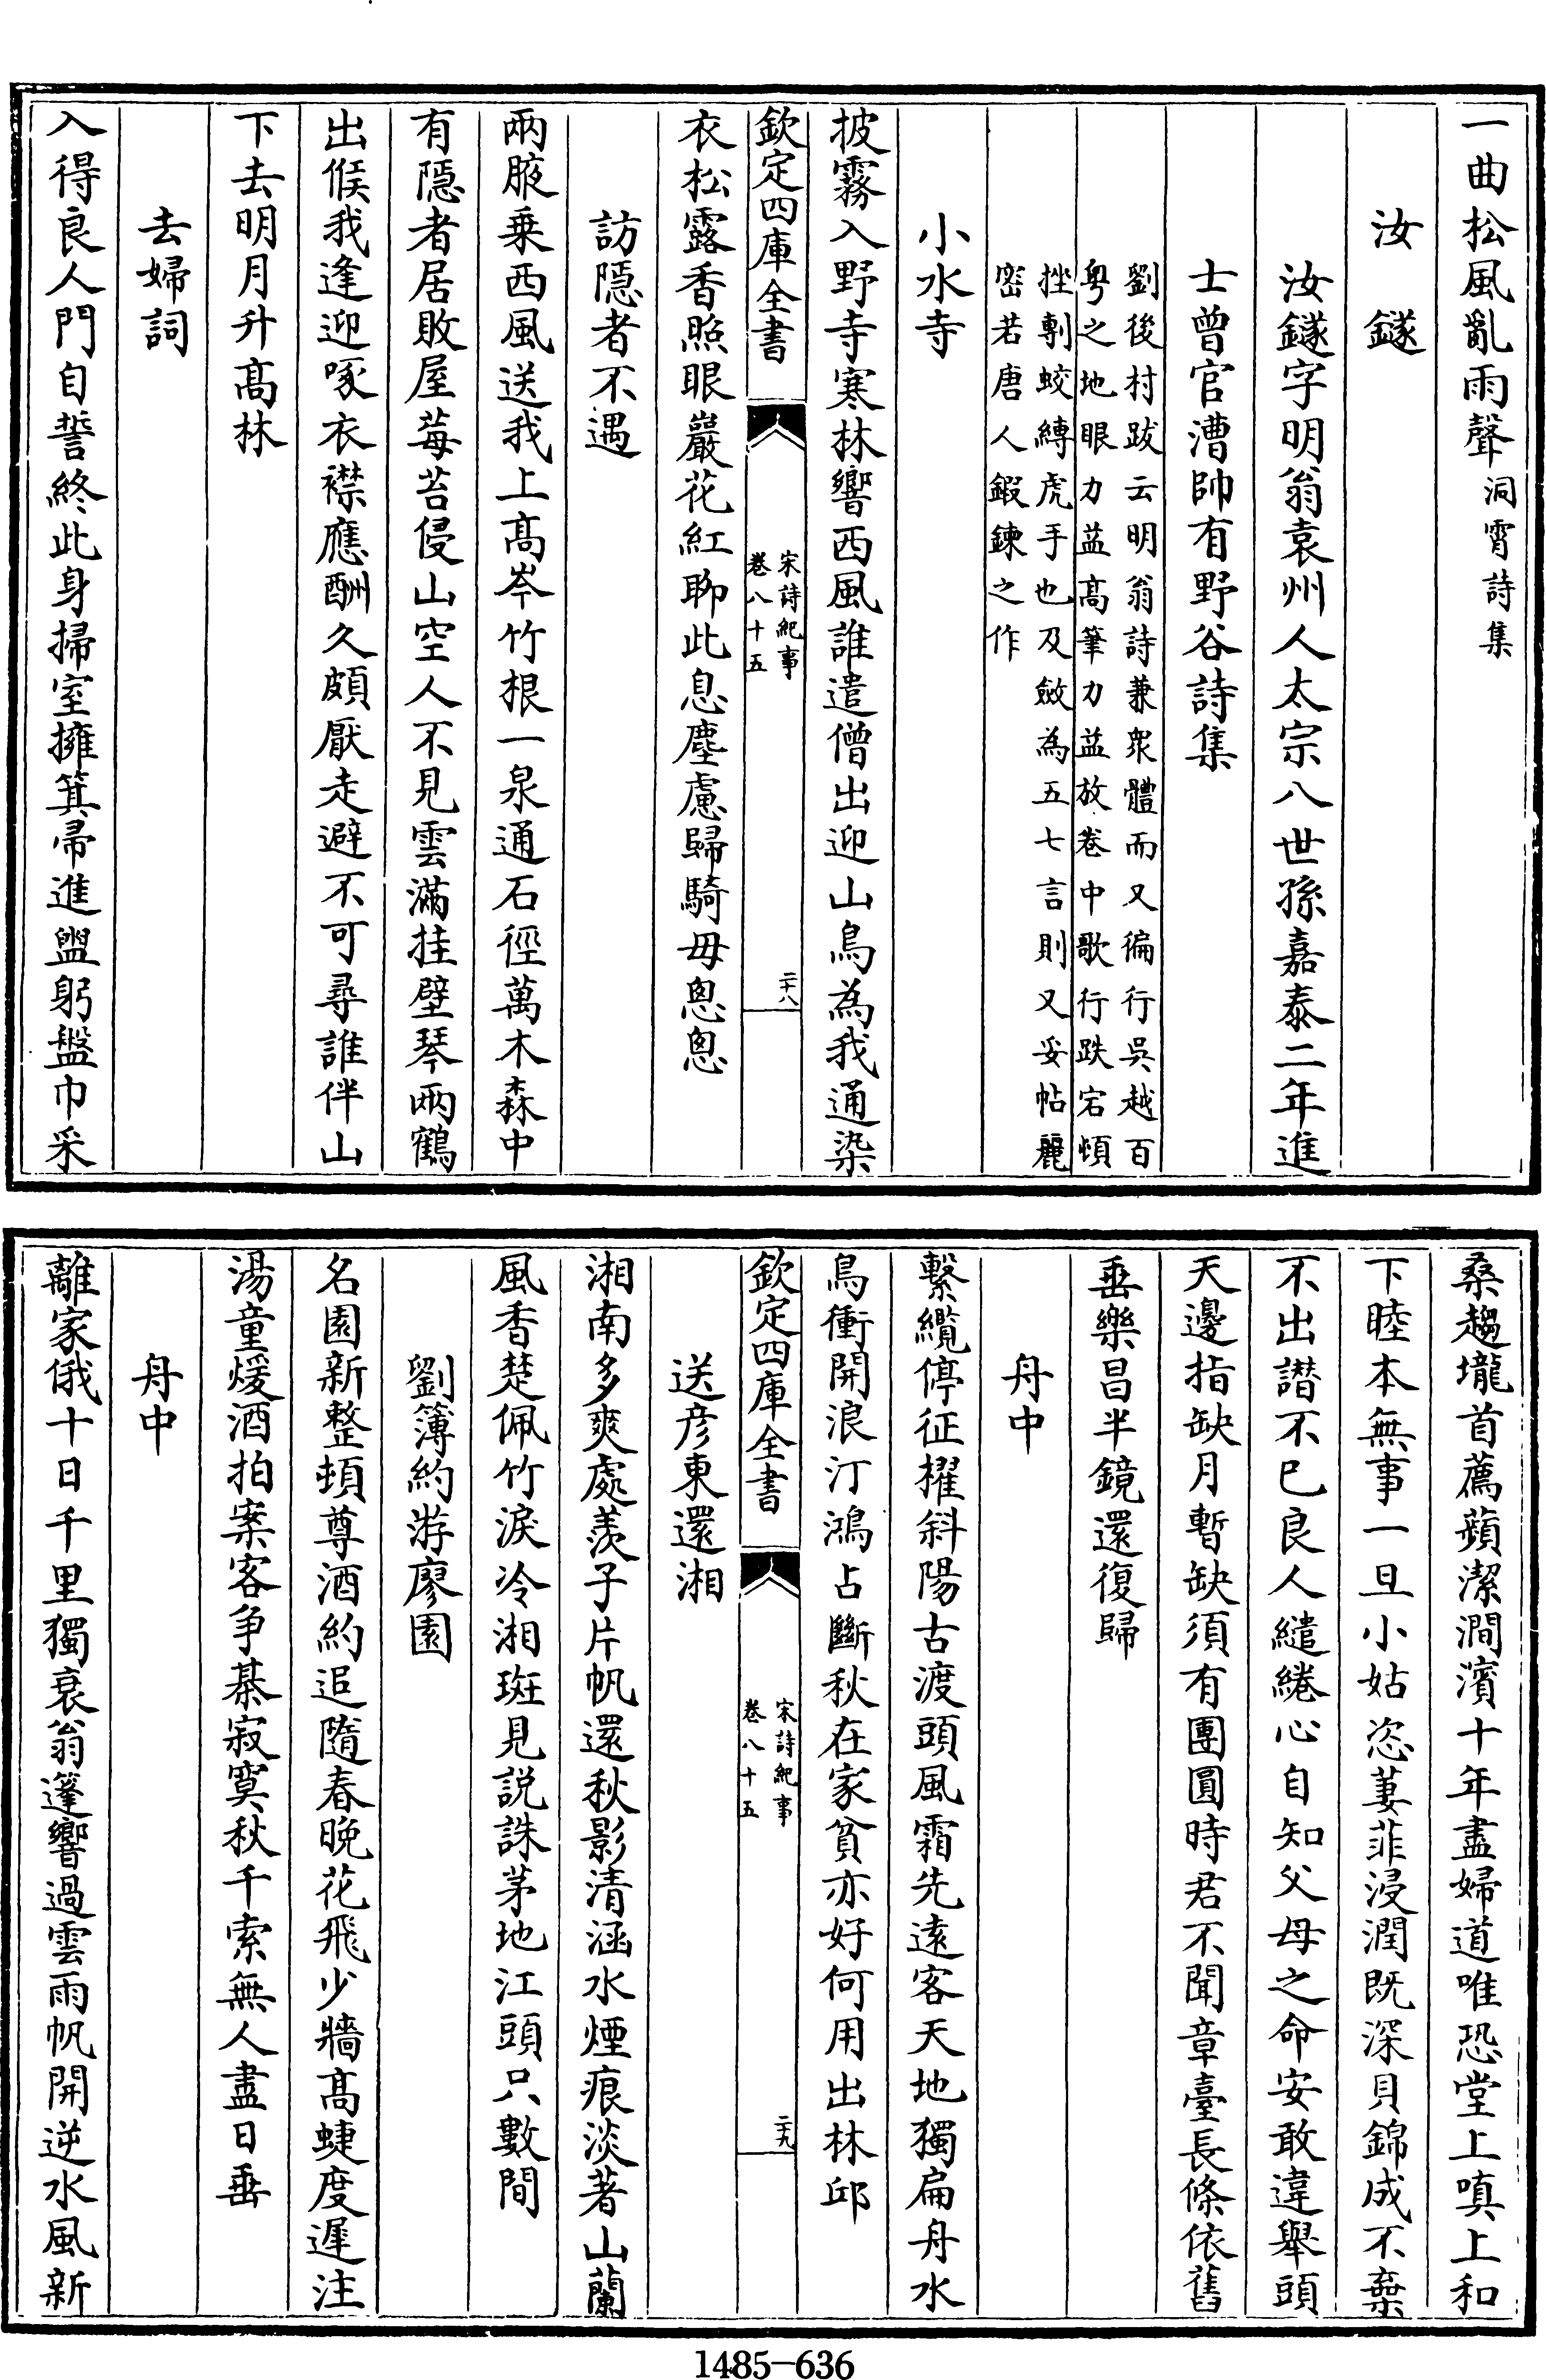 一曲松風亂雨聲洞霄詩集
汝鐩
汝鐩字明翁袁州人太宗八世孫嘉泰二年進
士曾官漕帥有野谷詩集
劉後村跋云明翁詩兼衆體而又徧行吳越百
粤之地眼力益高筆力益放卷中歌行跌宕頓
挫剸蛟縛虎手也及斂為五七言則又妥帖麗
密若唐人鍜鍊之作
小水寺
披霧入野寺寒林響西風誰遣僧出迎山鳥為我通染
欽定四庫全書
宋詩紀事
卷八十五
二十八
衣松露香照眼巖花紅聊此息塵慮歸騎毋悤悤
訪隱者不遇
兩腋乗西風送我上髙岑竹根一泉通石徑萬木森中
有隱者居敗屋莓苔侵山空人不見雲滿挂壁琴兩鶴
出候我逢迎啄衣襟應酬久頗厭走避不可尋誰伴山
下去明月升髙林
去婦詞
入得良人門自誓終此身掃室擁箕帚進盥躬盤巾采
桑趨壠首薦蘋潔澗濱十年盡婦道唯恐堂上嗔上和
下睦本無事一旦小姑恣萋菲浸潤既深貝錦成不棄
不出譖不已良人繾綣心自知父母之命安敢違舉頭
天邊指缺月暫缺須有團圓時君不聞章臺長條依舊
垂樂昌半鏡還復歸
舟中
繫纜停征櫂斜陽古渡頭風霜先遠客天地獨扁舟水
鳥衝開浪汀鴻占斷秋在家貧亦好何用出林邱
欽定四庫全書
宋詩紀事
卷八十五
二十九
送彦東還湘
湘南多爽處羨子片帆還秋影清涵水煙痕淡著山蘭
風香楚佩竹淚冷湘斑見説誅茅地江頭只數間
劉簿約游廖園
名園新整頓尊酒約追隨春晚花飛少牆髙蜨度遲注
湯童煖酒拍案客争棊寂寞秋千索無人盡日垂
舟中
離家俄十日千里獨衰翁篷響過雲雨帆開逆水風新
1485-636